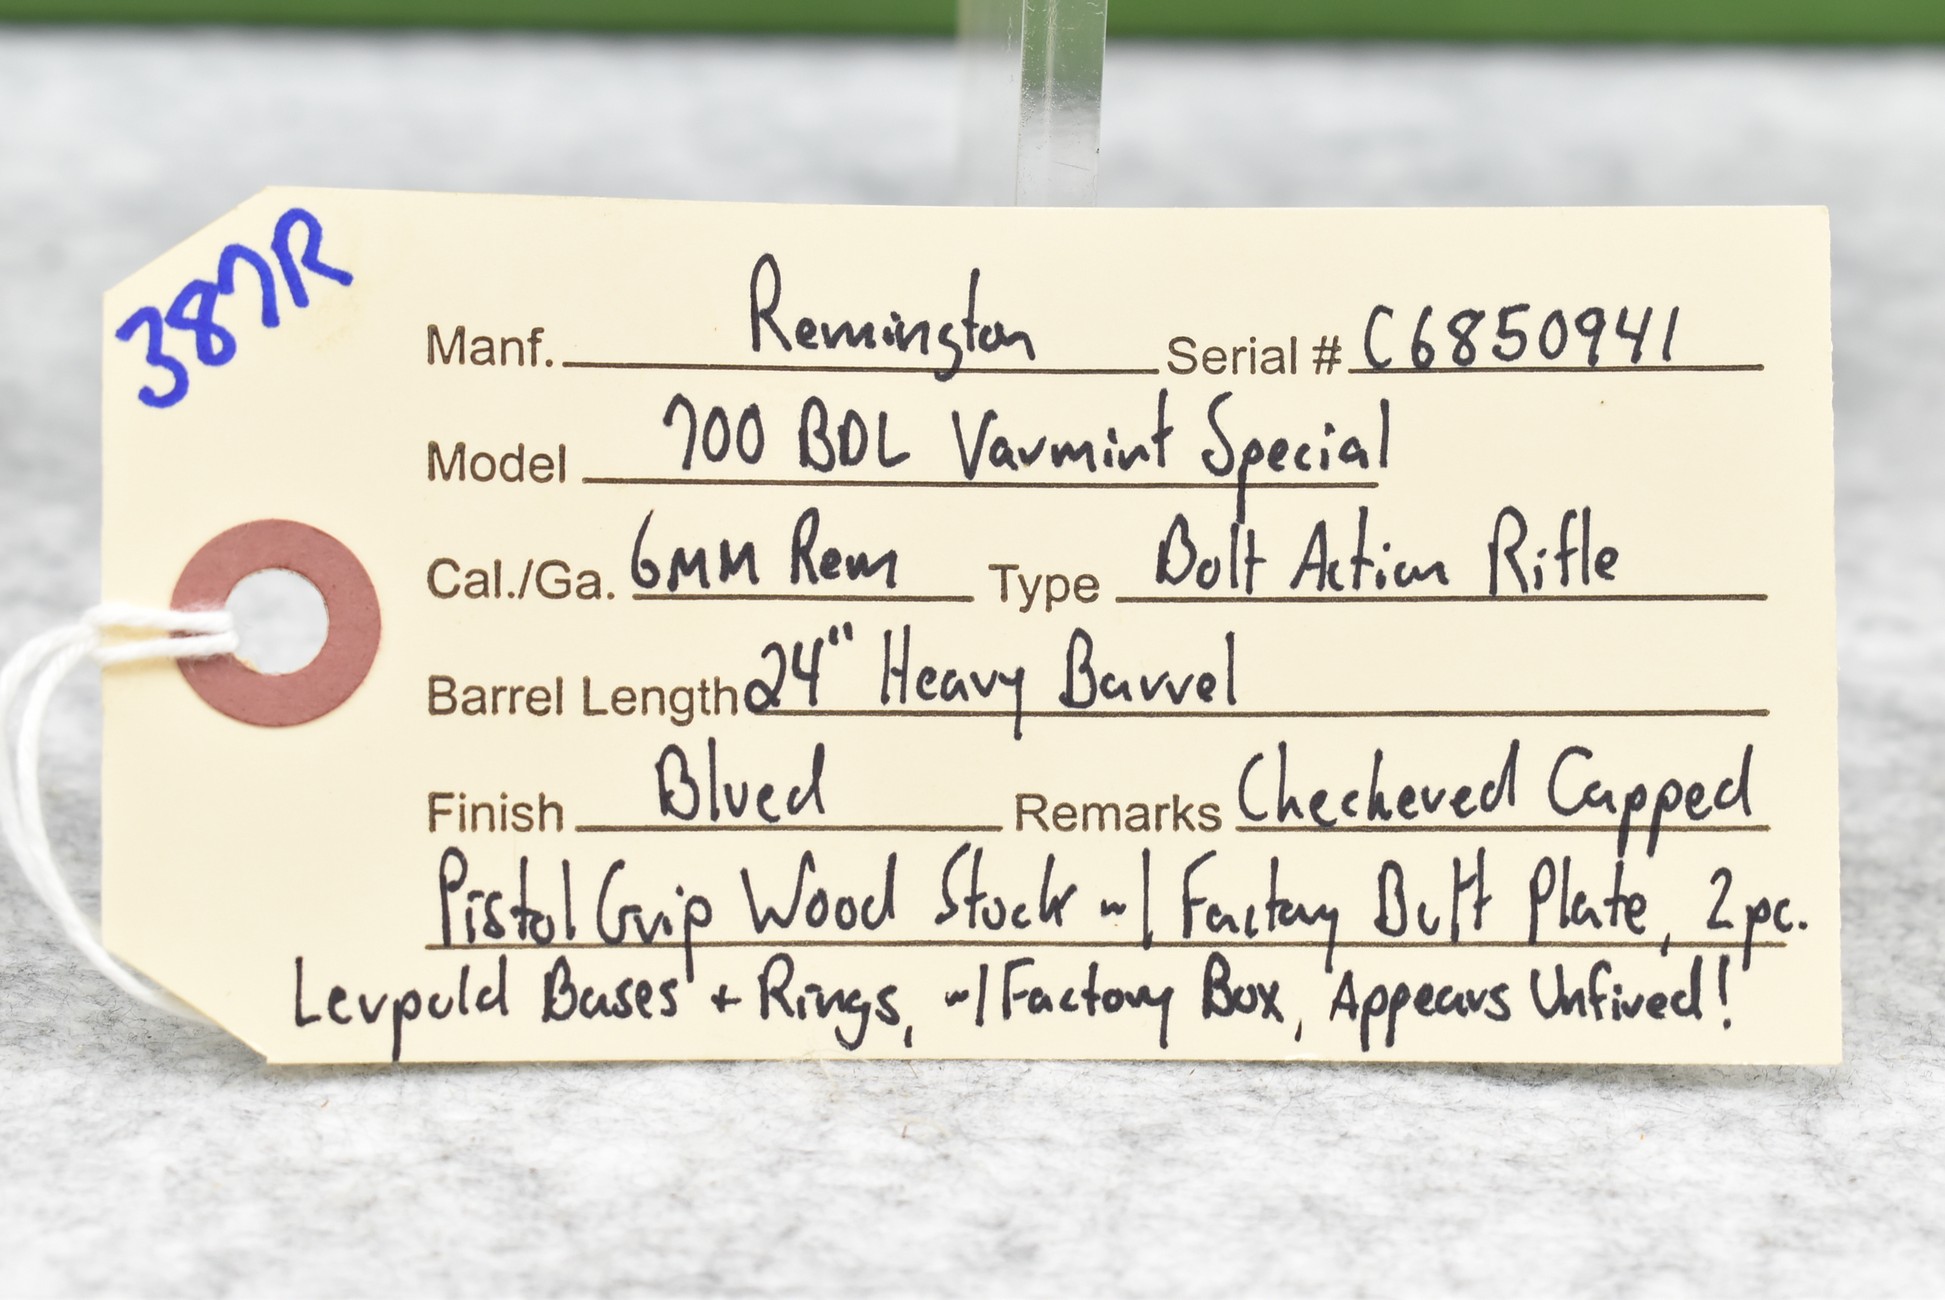 387R
Manf. Remington Serial # C6850941
Model 700 BDL Varmint Special
Cal./Ga. 6MM Rem Type Bolt Action Rifle
Barrel Length 24" Heavy Barrel
Finish Blued Remarks Checkered Capped
Pistol Grip Wood Stock w/ Factory Butt Plate, 2 pc.
Leupold Bases + Rings, w/ Factory Box, Appears Unfired!